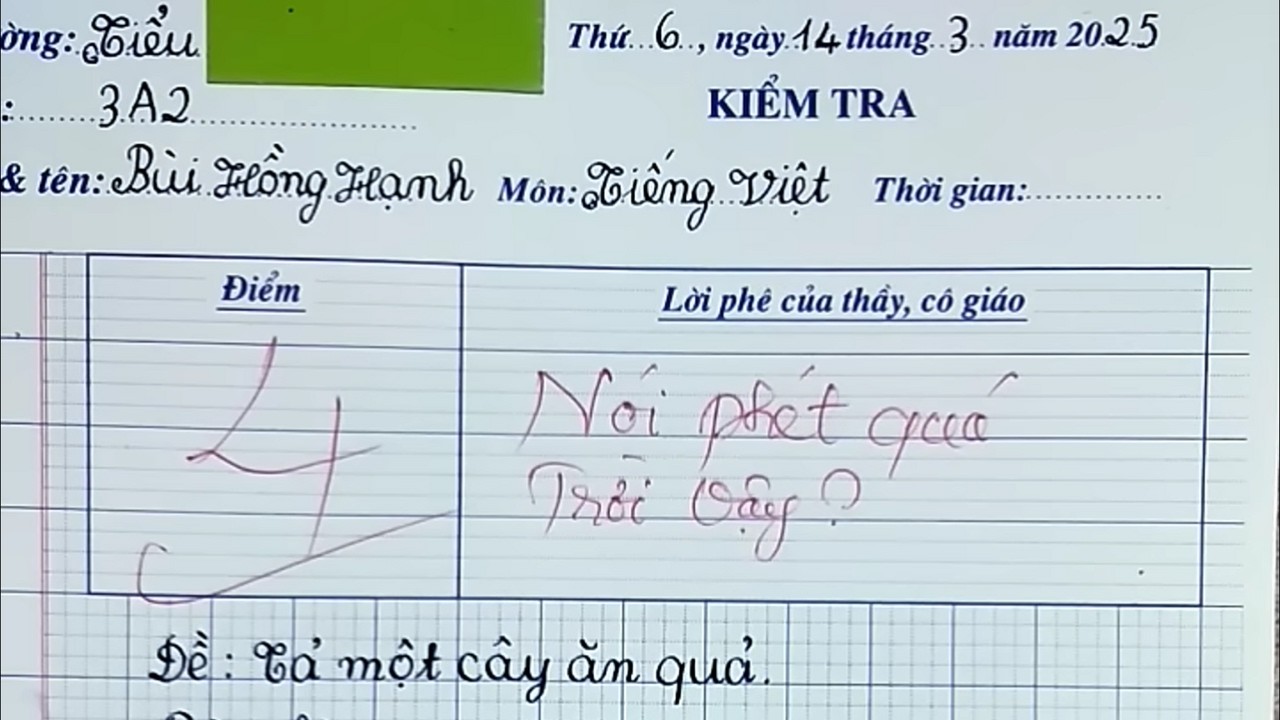 ờng: Tiểu
Thứ 6, ngày 14 tháng 3 năm 2025
: 3A2
KIỂM TRA
& tên: Bùi Hồng Hạnh Môn: Tiếng Việt Thời gian:
Điểm
Lời phê của thầy, cô giáo
4
Nói phét quá
Trời vậy?
Đề: Tả một cây ăn quả.